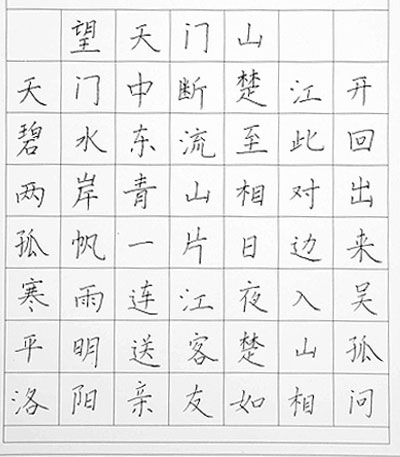 望天门山
天门中断楚江开
碧水东流至此回
两岸青山相对出
孤帆一片日边来
寒雨连江夜入吴
平明送客楚山孤
洛阳亲友如相问